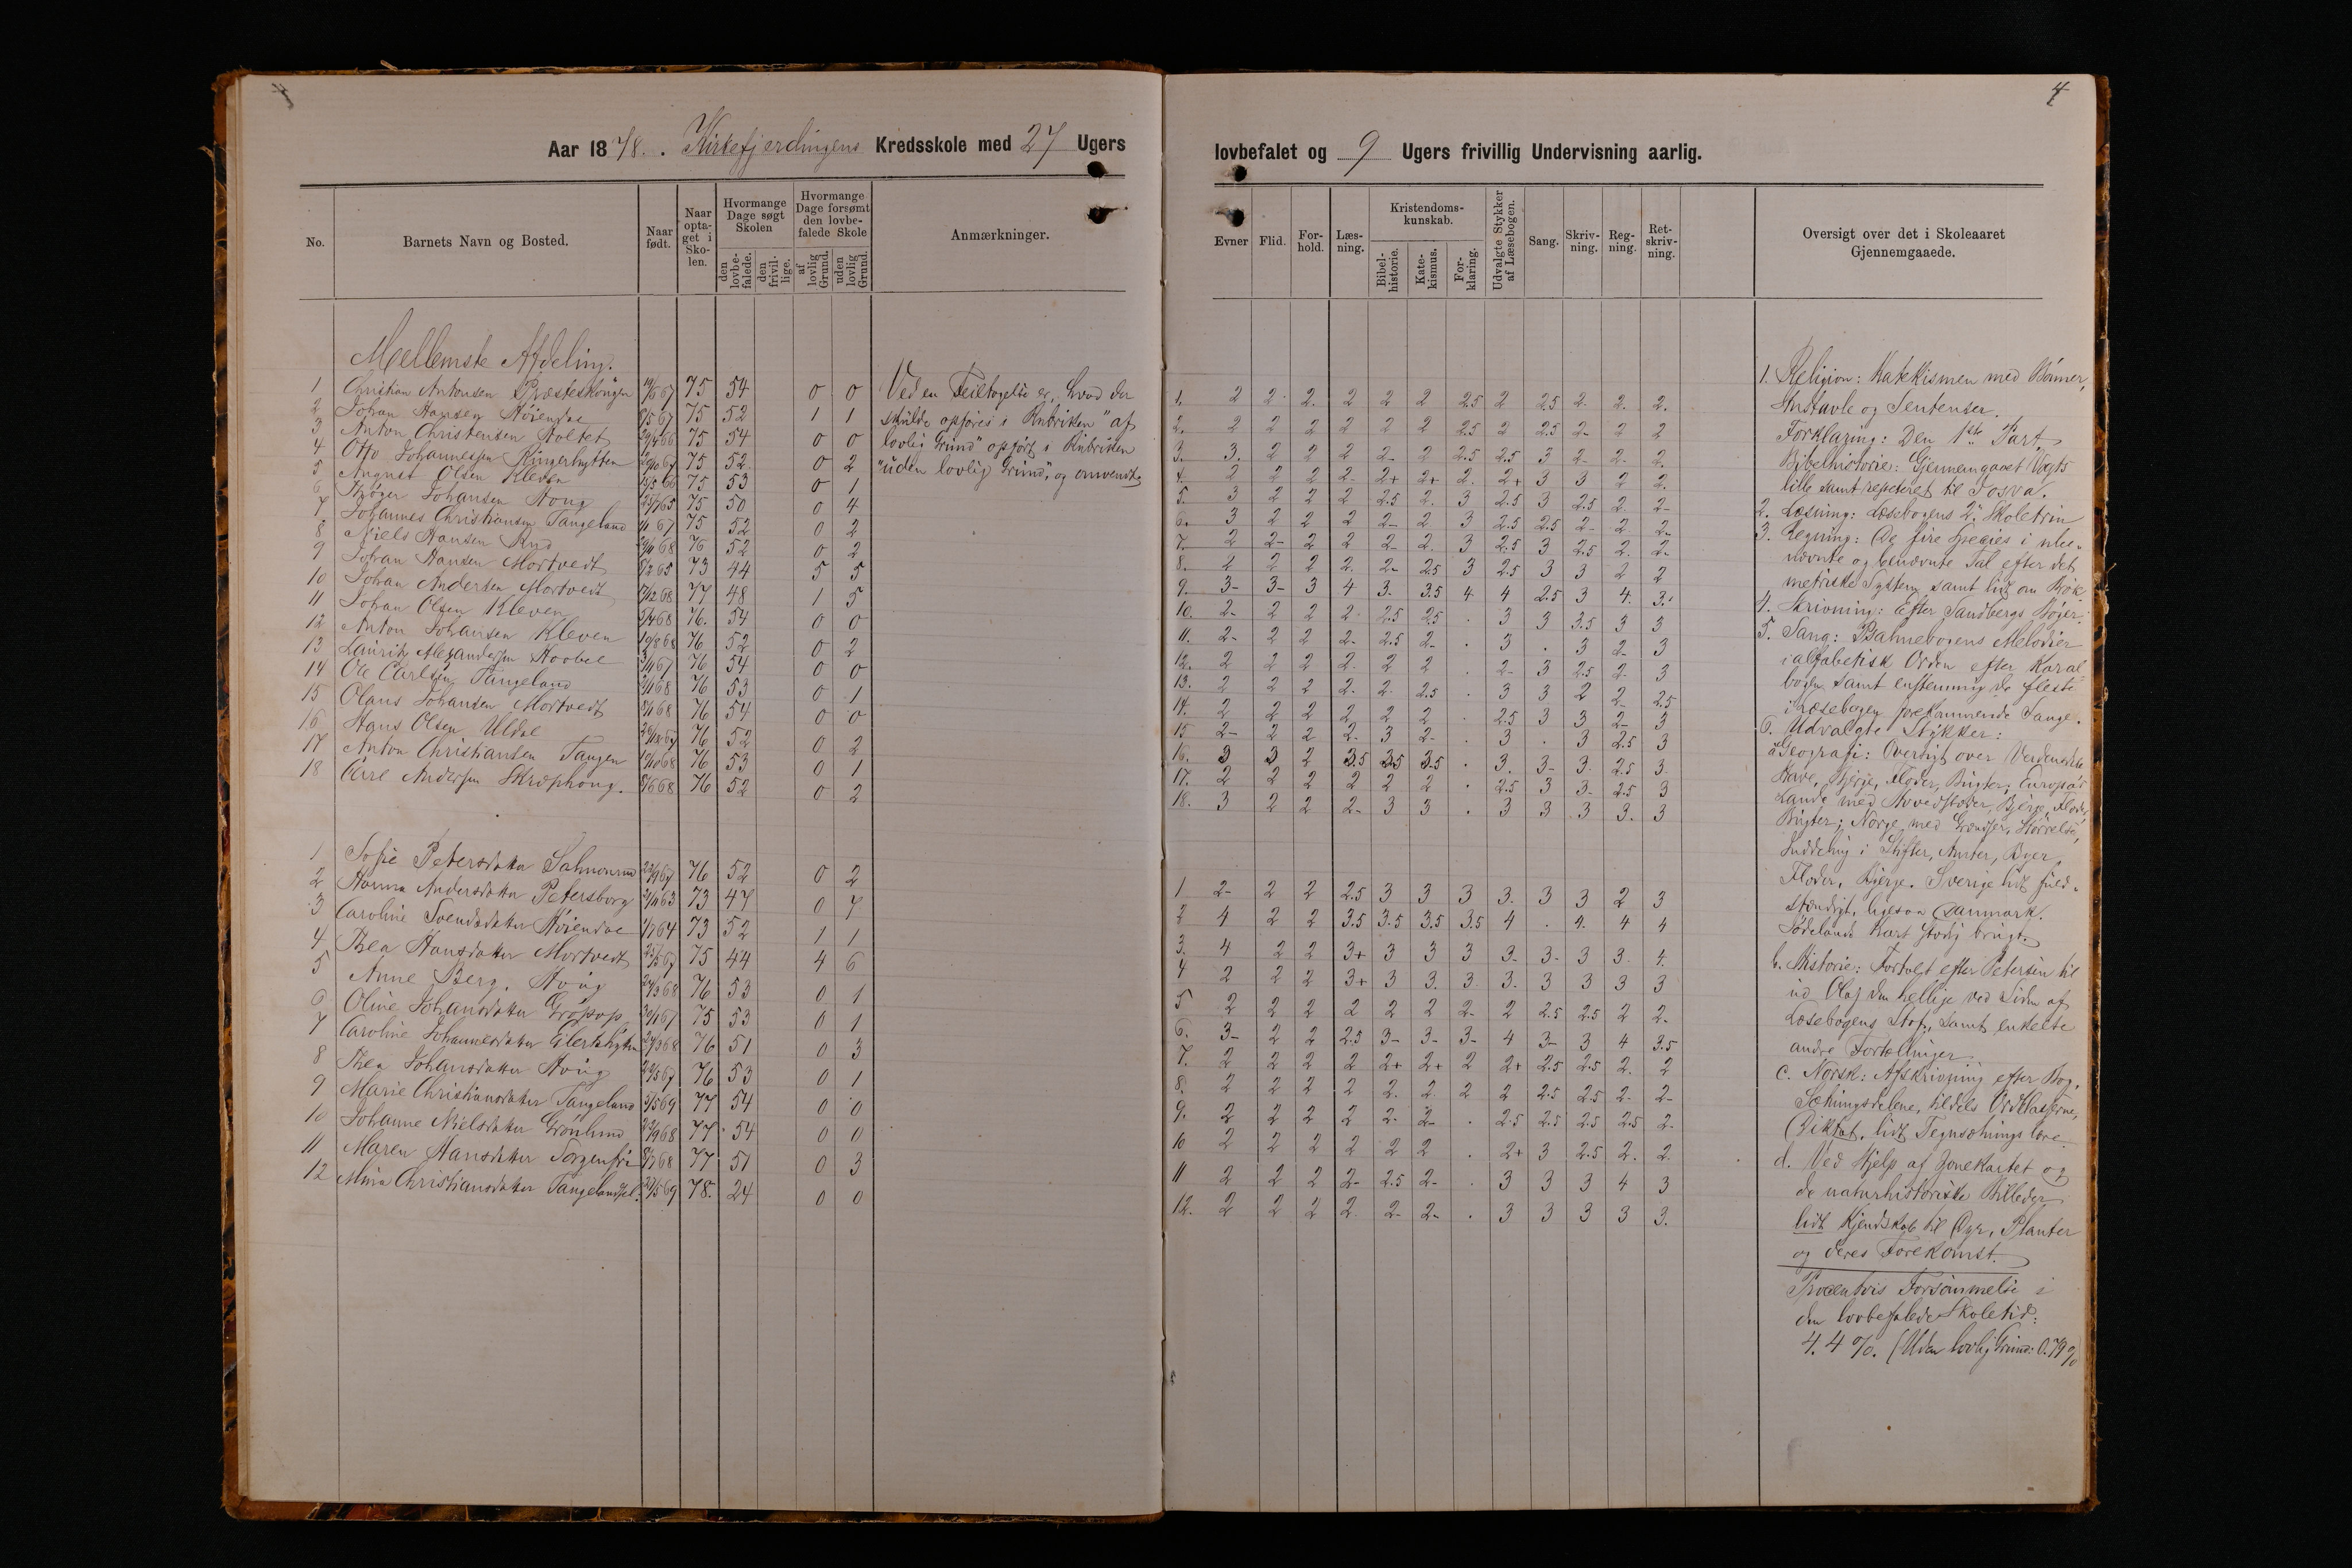 4
4
Aar 1878. Kirkefjerdingens Kredsskole med 27 Ugers
lovbefalet og 9 Ugers frivillig Undervisning aarlig.
No.
Barnets Navn og Bosted.
Naar født.
Naar optaget i Skolen.
Hvormange Dage søgt Skolen
den lovbefalede.
den frivillige.
Hvormange Dage forsømt den lovbefalede Skole
af lovlig Grund.
uden lovlig Grund.
Anmærkninger.
Mellemste Afdeling.
1 Christian Antonsen 75 54 0 0
2 Johan Hansen Höiendae 8/5 67 75 52 1 1
3 Anton Christensen Holtet 75 54 0 0
4 Otto Johannessen 75 52 0 2
5 August Olsen Kleven 75 53 0 1
6 Johansen Houg 75 50 0 4
7 Johannes Christiansen Tangeland 67 75 52 0 2
8 Niels Hansen Ryd 68 76 52 0 2
9 Johan Hansen Mortvedt 65 73 44 5 5
10 Johan Andersen Mortvedt 68 77 48 1 5
11 Johan Olsen Kleven 68 76. 54 0 0
12 Anton Johansen Kleven 68 76 52 0 2
13 Lauritz Alexandersen 67 76 54 0 0
14 Ole Carlsen Tangeland 68 76 53 0 1
15 Olaus Johansen Mortvedt 68 76 54 0 0
16 Hans Olsen Uldal 67 76 52 0 2
17 Anton Christiansen Tangen 68 76 53 0 1
18 Carl Andersen 68 76 52 0 2
1 Sofie Petersdatter 67 76 52 0 2
2 Hanna Andersdatter Petersborg 63 73 47 0 7
3 Caroline Svendsdatter Höiendae 64 73 52 1 1
4 Thea Hansdatter Mortvedt 67 75 44 4 6
5 Anne Berg, Houg 68 76 53 0 1
6 Oline Johansdatter Gropop 67 75 53 0 1
7 Caroline Johannesdatter 68 76 51 0 3
8 Thea Johansdatter Houg 67 76 53 0 1
9 Marie Christiansdatter Tangeland 69 77 54 0 0
10 Johanne Nielsdatter Grönlund 68 77 54 0 0
11 Maren Hansdatter Sorgenfri 68 77 51 0 3
12 Mina Christiansdatter 69 78. 24 0 0
Ved en Feiltagelse er, hvad der
skulde opføres i Rubriken "af
lovlig Grund" opført i Rubriken
"uden lovlig Grund", og omvendt.
Evner
Flid.
Forhold.
Læsning.
Kristendomskunskab.
Bibelhistorie.
Katekismus.
Forklaring.
Udvalgte Stykker af Læsebogen.
Sang.
Skrivning.
Regning.
Retskrivning.
Oversigt over det i Skoleaaret Gjennemgaaede.
1. 2 2 2. 2 2 2 2.5 2 2.5 2. 2. 2.
2. 2 2 2 2 2 2 2.5 2 2.5 2- 2 2
3. 3. 2 2 2 2- 2 2.5 2.5 3 2- 2- 2.
4. 2 2 2 2- 2+ 2+ 2. 2+ 3 3 2 2.
5. 3 2 2 2 2.5 2. 3 2.5 3 2.5 2. 2-
6. 3 2 2 2 2- 2 3 2.5 2.5 2- 2 2-
7. 2 2- 2 2 2- 2. 3 2.5 3 2.5 2. 2-
8. 2 2 2 2. 2- 2.5 3 2.5 3 3 2 2
9. 3- 3- 3 4 3. 3.5 4 4 2.5 3 4. 3.
10. 2- 2 2 2. 2.5 2.5 . 3 3 3.5 3 3
11. 2- 2 2 2- 2.5 2- . 3 . 3 2- 3
12. 2 2 2 2. 2 2 . 2- 3 2.5 2. 3
13. 2 2 2 2. 2. 2.5 . 3 3 2 2 2.5
14. 2 2 2 2 2 2 . 2.5 3 3 2- 3
15 2- 2 2 2- 3 2- . 3 . 3 2.5 3
16. 3 3 2 3.5 3.5 3.5 . 3. 3- 3. 2.5 3.
17. 2 2 2 2 2 2 . 2.5 3 3- 2.5 3
18. 3 2 2 2- 3 3 . 3 3 3 3. 3
1 2- 2 2 2.5 3 3 3 3. 3 3 2 3
2 4 2 2 3.5 3.5 3.5 3.5 4 . 4. 4 4
3. 4 2 2 3+ 3 3 3 3- 3- 3 3. 4.
4 2 2 2 3+ 3 3. 3 3. 3 3 3 3
5 2 2 2 2 2 2 2- 2 2.5 2.5 2 2-
6. 3- 2 2 2.5 3- 3- 3- 4 3- 3 4 3.5
7. 2 2 2 2 2+ 2+ 2 2+ 2.5 2.5 2. 2
8. 2 2 2 2 2. 2. 2 2 2.5 2.5 2- 2-
9. 2 2 2 2 2- 2- . 2.5 2.5 2.5 2.5 2-
10 2 2 2 2 2 2 . 2+ 3 2.5 2. 2.
11 2 2 2 2- 2.5 2- . 3 3 3 4 3
12. 2 2 2 2. 2- 2- . 3 3 3 3 3.
1. Religion: Katekismen med Bönner,
Hustavle og Sentenser.
Forklaring: Den 1ste Part.
Bibelhistorie: Gjennemgaaet Vogts
lille samt repeteret til Josva.
2. Læsning: Læsebogens 2. Skoletrin
3. Regning: De fire Species i ube-
nævnte og benævnte Tal efter det
metriske System, samt lidt om Brök
4. Skrivning: Efter Sandbergs Böger.
5. Sang: Psalmebogens Melodier
i alfabetisk Orden efter Koral-
bogen samt enstemmig de fleste
i Læsebogen forekommende Sange.
6. Udvalgte Stykker:
a. Geografi: Oversigt over Verdensdele
Have, Bjerge, Floder, Bugter; Europas
Lande med Hovedstæder, Bjerge, Floder,
Bugter; Norge med Grændser, Störrelse,
Inddeling i Stifter, Amter, Byer,
Floder, Bjerge. Sverige lidt fuld-
stændigt, ligesaa Danmark.
Jödelands Kart stadig brugt.
b. Historie: Fortalt efter Petersen til
ud Olaf den hellige ved Siden af
Læsebogens Stof, samt enkelte
andre Fortællinger
c. Norsk: Afskrivning efter Bog,
Sætningsdelene, tildels Ordklasserne,
Diktat, lidt Tegnsætningslære.
d. Ved Hjelp af Zonekartet og
de naturhistoriske Billeder
lidt Kjendskab til Dyr, Planter
og deres Forekomst.
Procentvis Forsömmelse i
den lovbefalede Skoletid:
4.4 %. (Uden lovlig Grund: 0.79 %